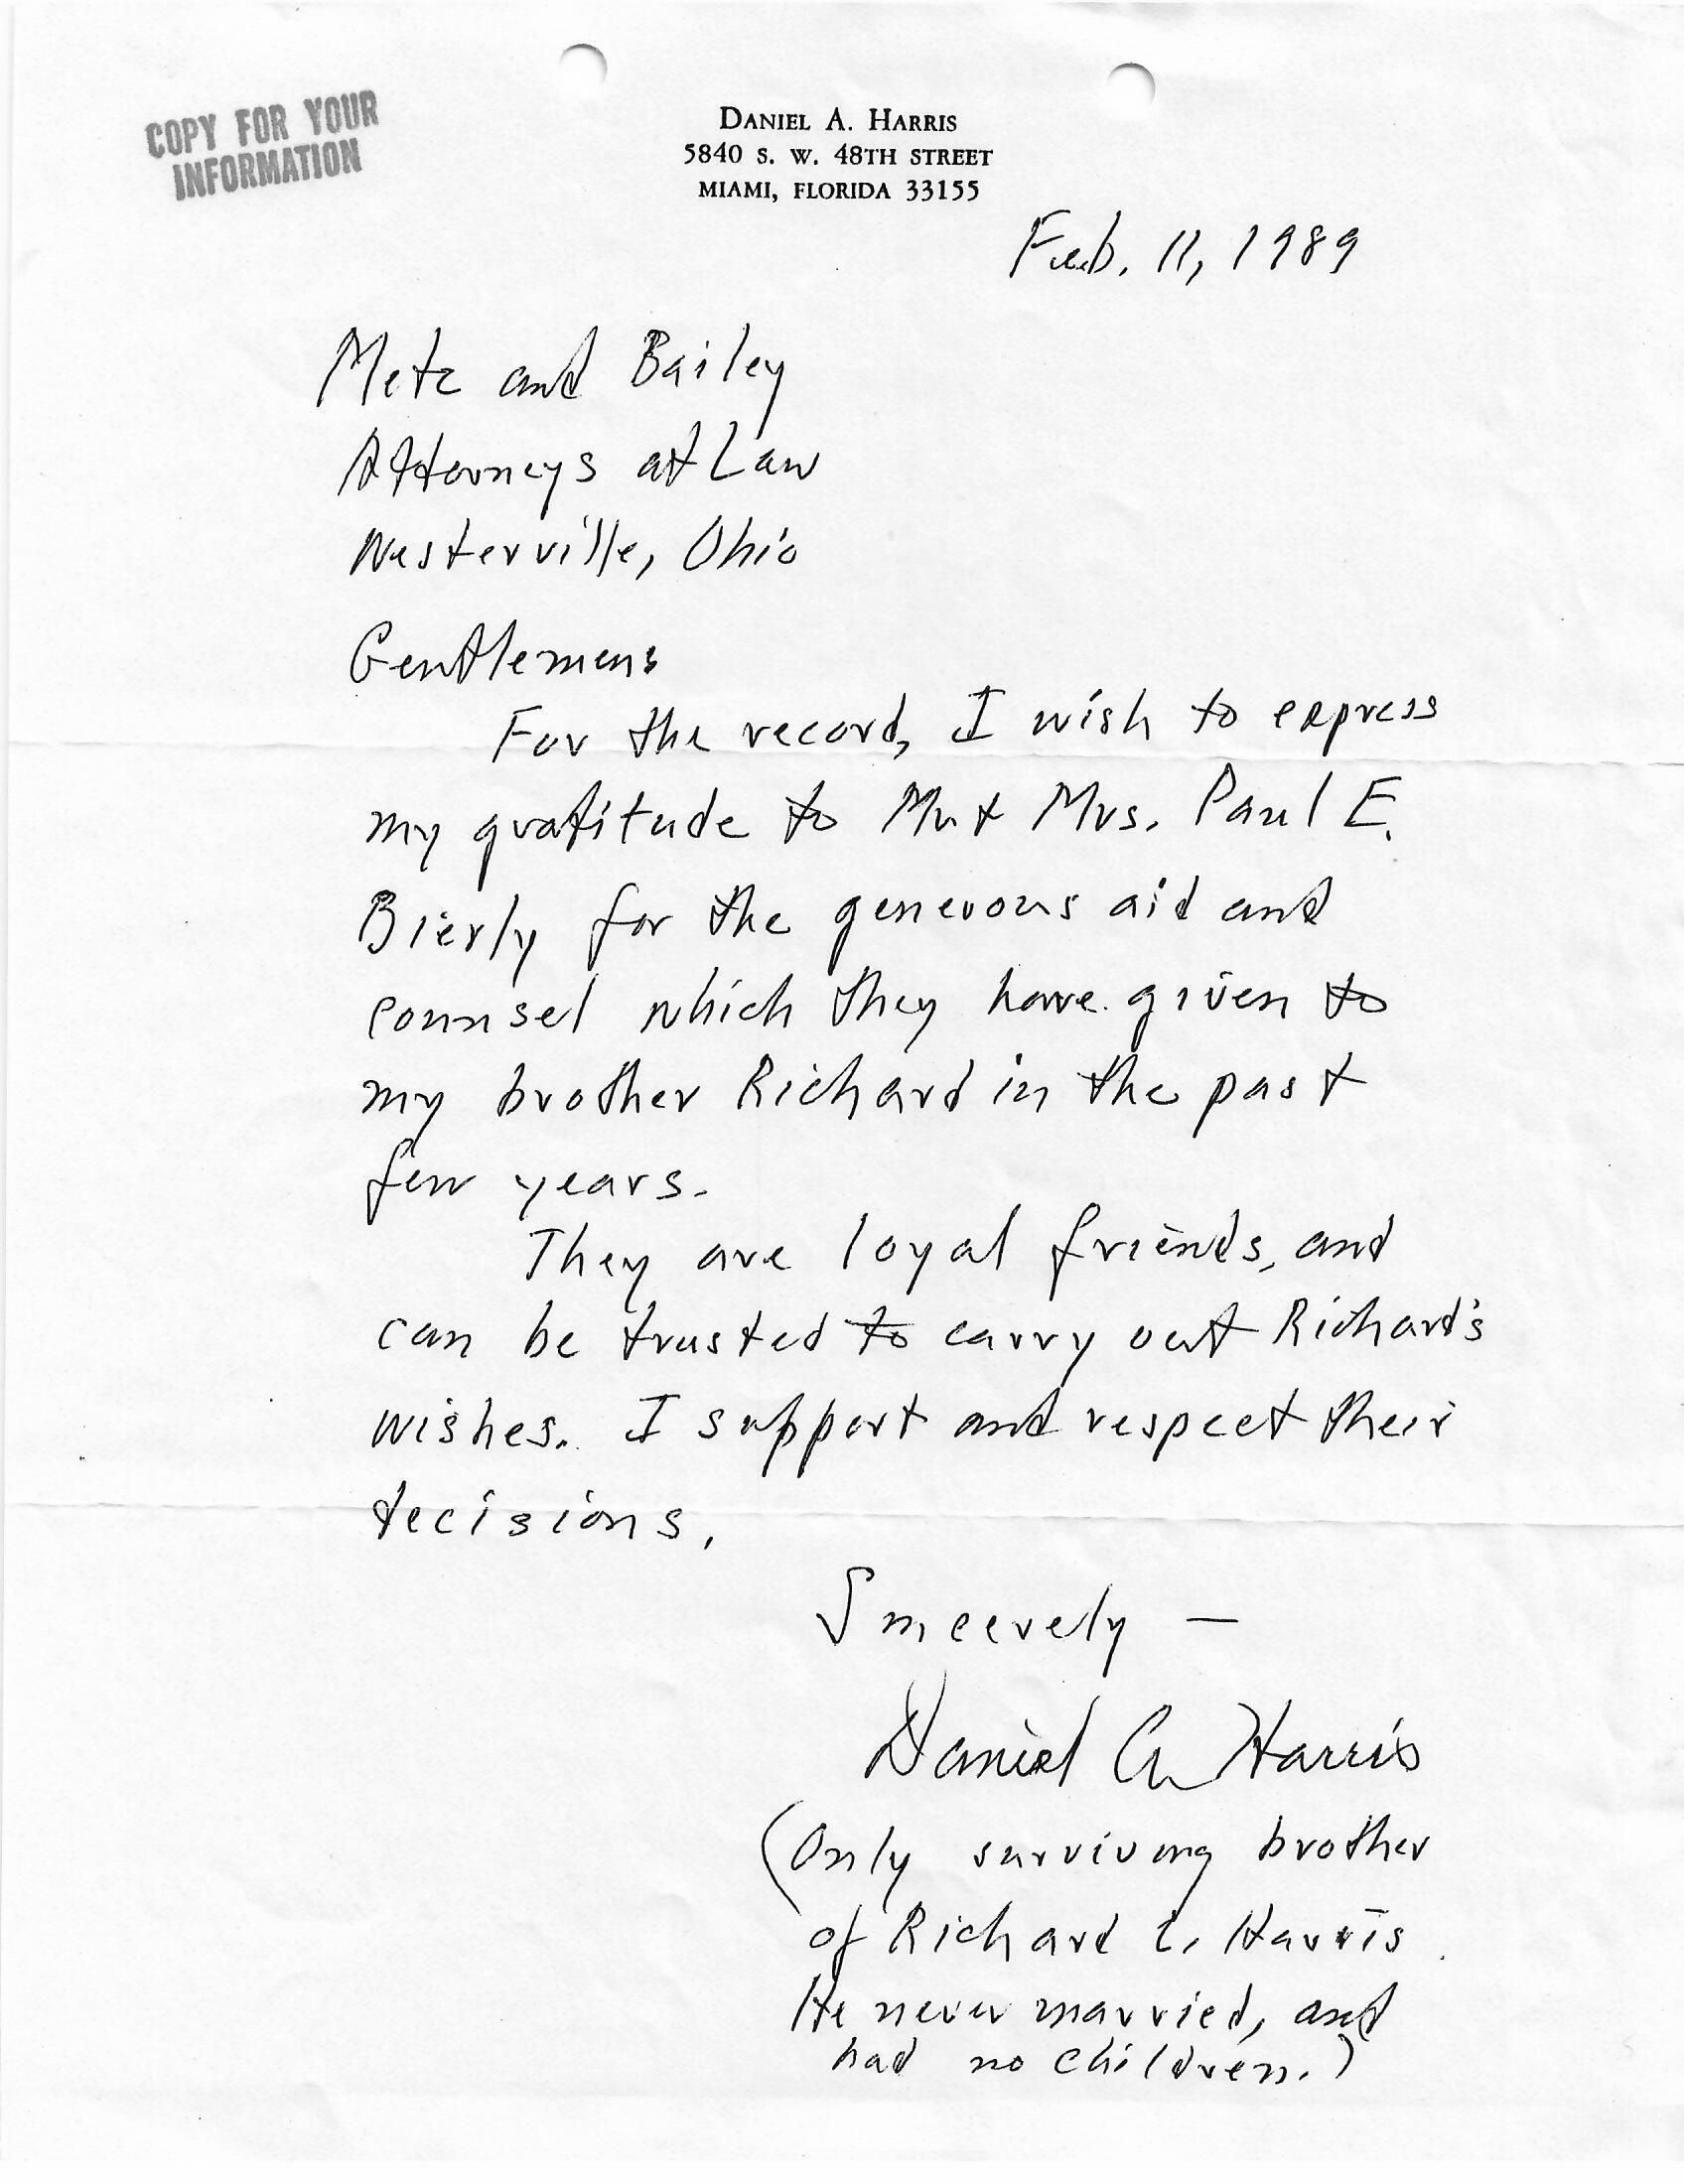 COPY FOR YOUR
INFORMATION
DANIEL A. HARRIS
5840 S. W. 48TH STREET
MIAMI, FLORIDA 33155
Feb. 11, 1989
Metz and Bailey
Attorneys at Law
Westerville, Ohio
Gentlemen:
For the record, I wish to express
my gratitude to Mr & Mrs. Paul E.
Bierly for the generous aid and
counsel which they have given to
my brother Richard in the past
few years.
They are loyal friends, and
can be trusted to carry out Richard's
wishes. I support and respect their
decisions.
Sincerely —
Daniel A. Harris
(Only surviving brother
of Richard L. Harris.
He never married, and
had no children.)